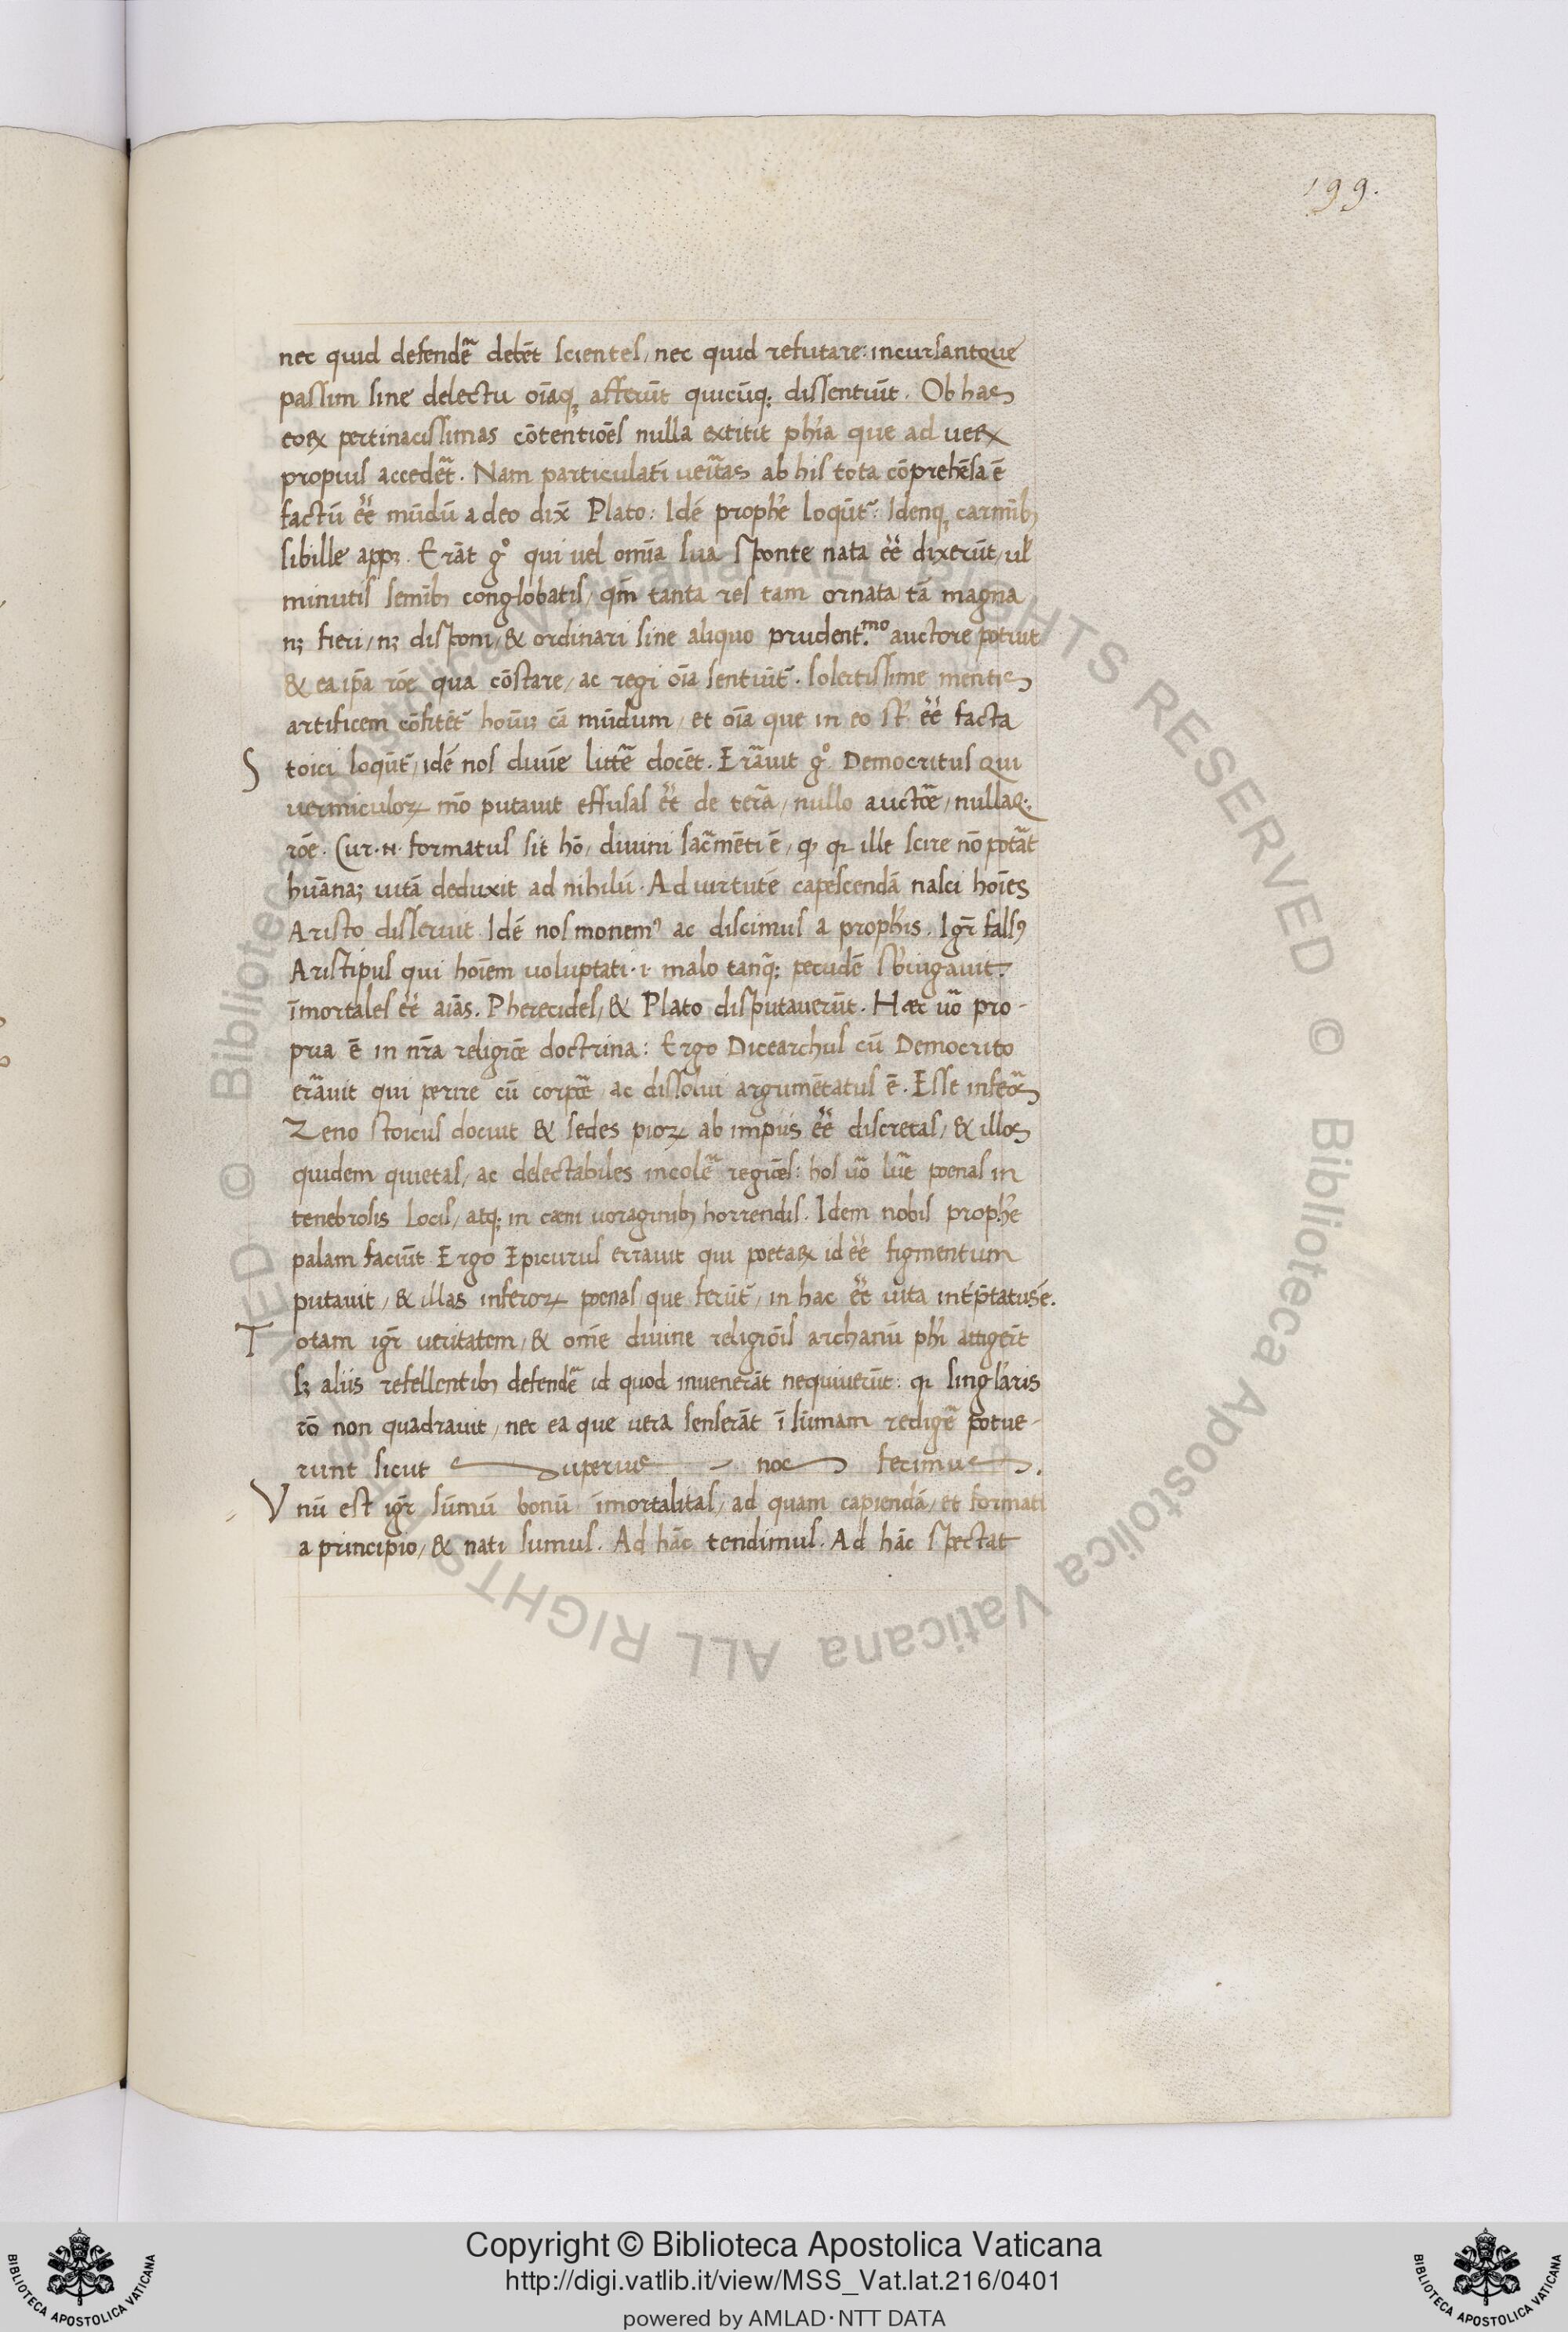 199.
nec quid defendẽ debẽt scientes, nec quid refutare: incursantque
passim sine delectu oĩaq; afferũt quicũq; dissentiũt. Ob has
eoꝝ pertinacissimas cõtentiões nulla extitit phĩa que ad ueꝝ
propius accedẽt. Nam particulatĩ ueĩtas ab his tota cõprehẽsa ẽ
factũ eẽ mũdũ a deo dix̃ Plato: Idẽ prophẽ loqũt̃: Idenq; carmĩbꝫ
sibille app̃. Erãt g° qui uel omĩa sua sponte nata eẽ dixerũt, ul̃
minutis semĩbꝫ conglobatis, qm̃ tanta res tam ornata tã magna
nꝫ fieri, nꝫ disponi, & ordinari sine aliquo prudent.mo auctore potuit
& ea ip̃a rõe qua cõstare, ac regi oĩa sentiũt̃. solertissime mentis
artificem cõfitẽt̃ houꝫ cã mũdum, et oĩa que in eo st̃ eẽ facta
Stoici loqũt̃, idẽ nos diuĩe littẽ docẽt. Erãuit g° Democritus qui
uermiculoꝝ mõ putauit effusas eẽ de terã, nullo auctõe, nullaq;
rõe. Cur .n. formatus sit hõ, diuini sac̃mẽti ẽ, qꝫ qꝛ ille scire nõ potãt
huãnaꝫ uitã deduxit ad nihilũ. Ad uirtutẽ capescendã nasci hoĩes
Aristo disseruit Idẽ nos monemꝰ ac discimus a prophĩs. Igr̃ falsꝰ
Aristipus qui hoĩem uoluptati .i. malo tanq̃; pecudẽ sb̃iugauit.
ĩmortales eẽ aĩas. Pherecides, & Plato disputauerũt. Hæc uõ pro-
pria ẽ in nr̃a religiõe doctrina: Ergo Dicearchus cũ Democrito
erãuit qui perire cũ corpõe ac dissolui argumẽtatus ẽ. Esse infeõs
Zeno stoicus docuit & sedes pioꝝ ab impiis eẽ discretas, & illos
quidem quietas, ac delectabiles incolẽ regiões: hos uõ luẽ poenas in
tenebrosis locis, atq; in cæni uoraginibꝫ horrendis. Idem nobis prophẽ
palam faciũt Ergo Epicurus errauit qui poetaꝝ id eẽ figmentum
putauit, & illas inferoꝝ poenas, que ferũt̃, in hac eẽ uita int̃p̃tatus ẽ.
Totam igr̃ ueritatem, & omẽ diuine religiõis archanũ phĩ attigẽt
sꝫ aliis refellentibꝫ defendẽ id quod inuenerãt nequiuerũt: qꝛ singl̃aris
rõ non quadrauit, nec ea que uera senserãt ĩ sũmam redigẽ potue-
runt sicut superius nos fecimus.
Vnũ est igr̃ sũmũ bonũ ĩmortalitas, ad quam capiendã, et formati
a principio, & nati sumus. Ad hãc tendimus. Ad hãc spectat
Copyright © Biblioteca Apostolica Vaticana
http://digi.vatlib.it/view/MSS_Vat.lat.216/0401
powered by AMLAD · NTT DATA